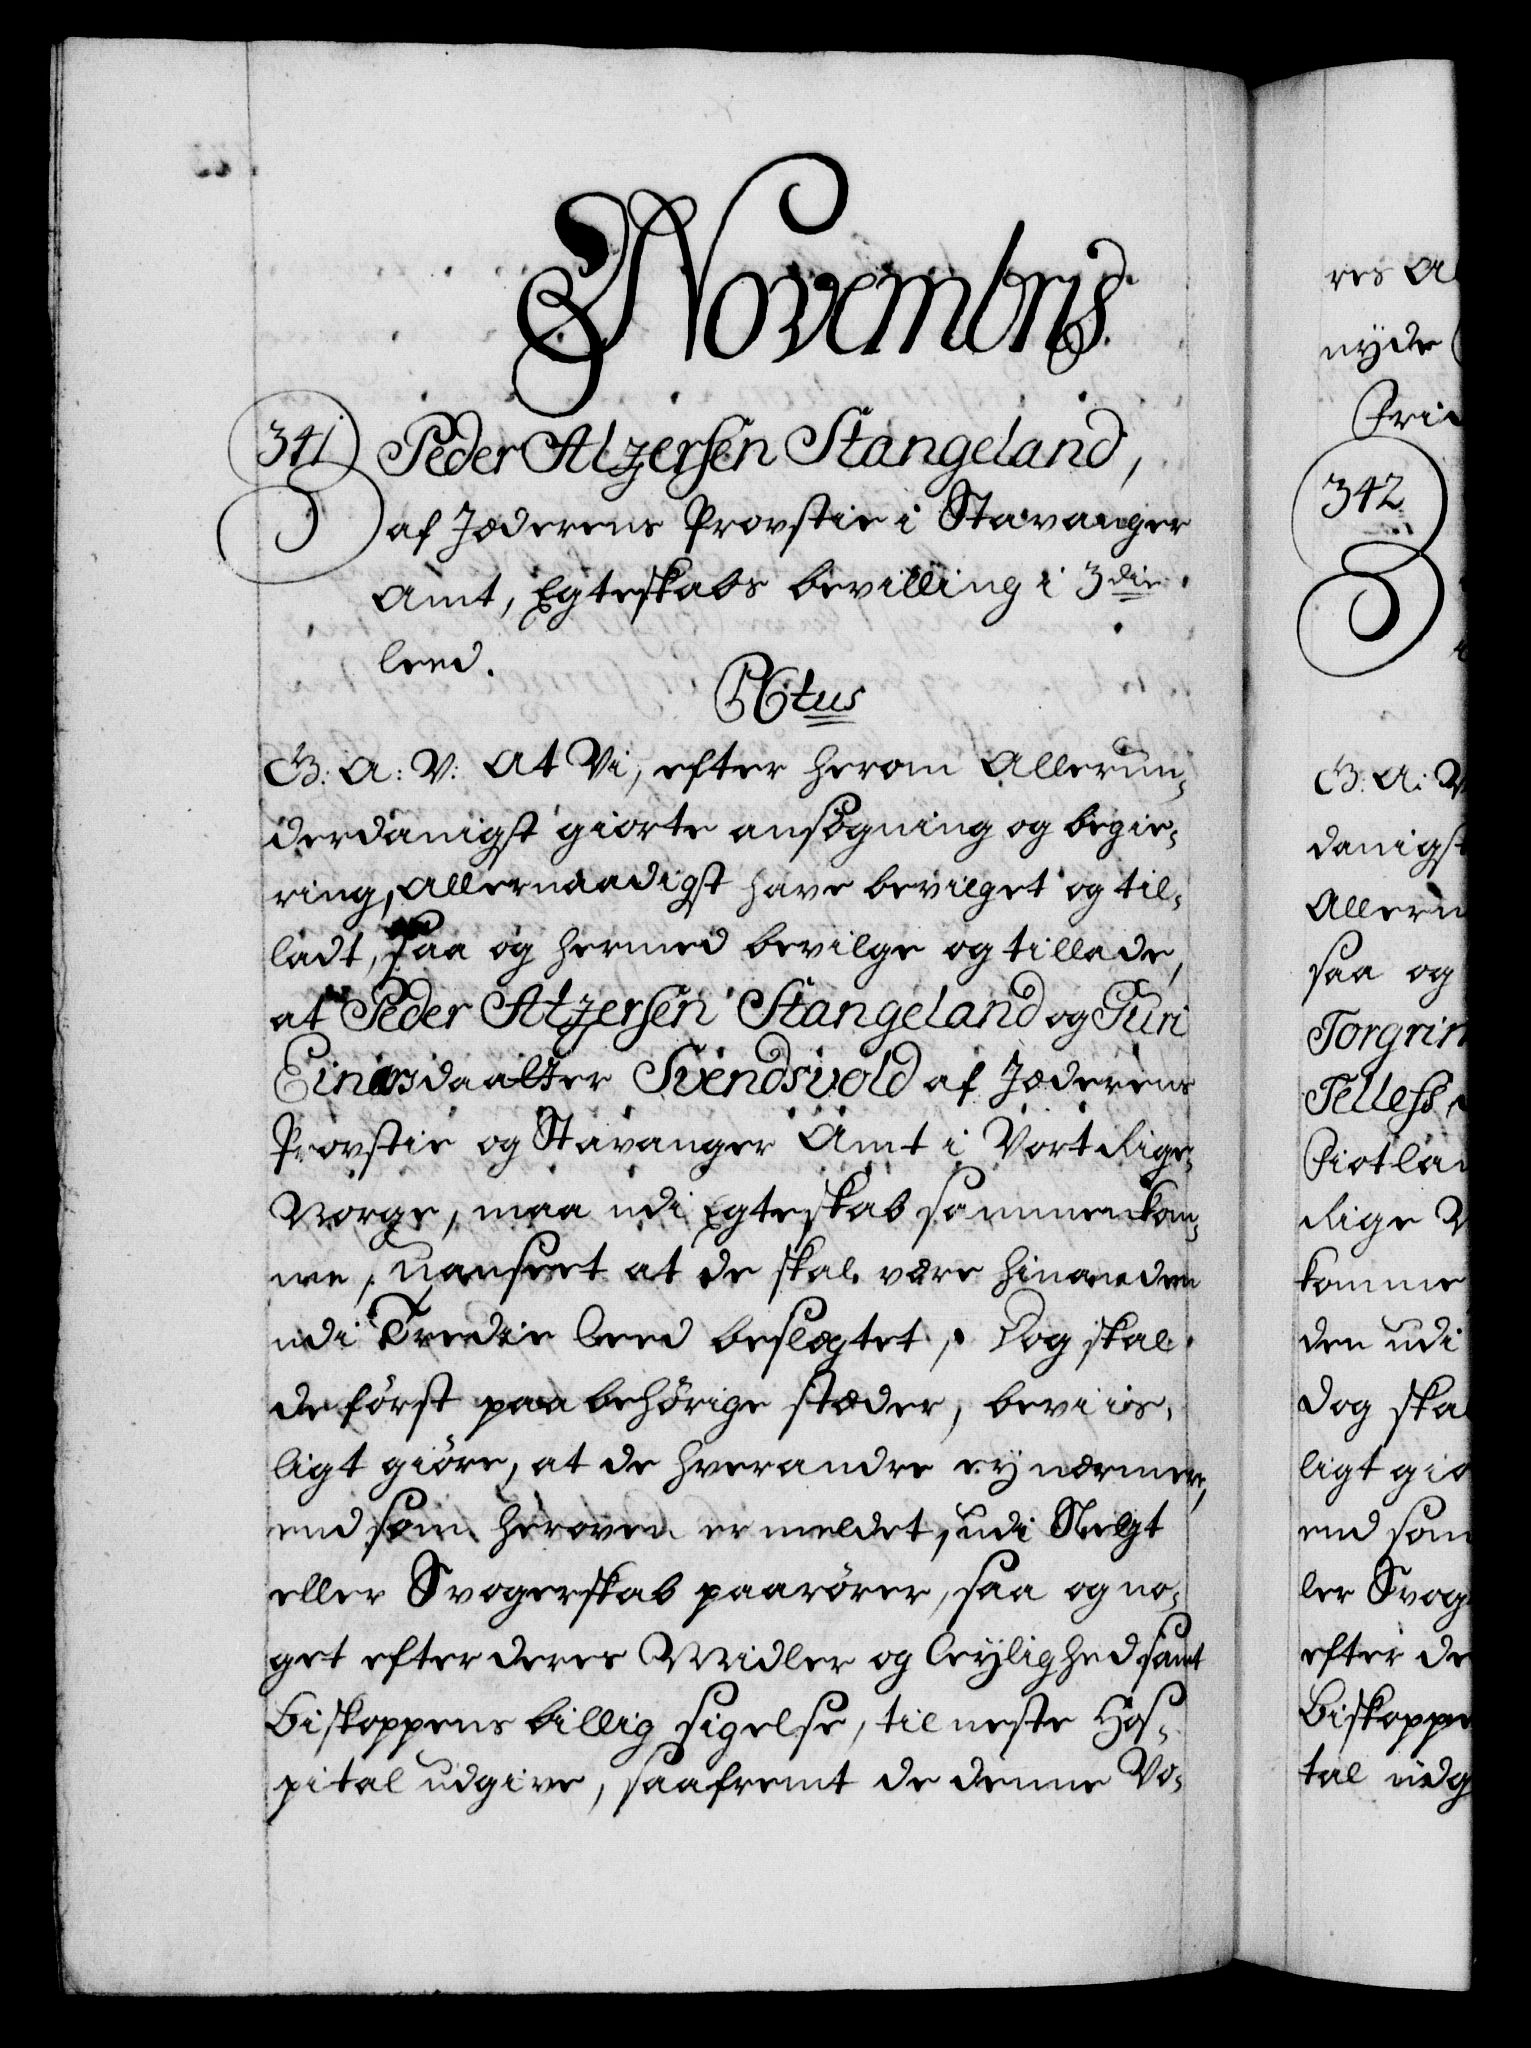 Novembris.
341
Peder Atzersen Stangeland,
af Jæderens Provstie i Stavanger
Amt, Egteskabs bevilling i 3die
leed.
PCtus
G: A: V: At Vi, efter herom Allerun-
derdanigst giorte ansøgning og begie-
ring, Allernaadigst have bevilget og til-
ladt, saa og hermed bevilge og tillade,
at Peder Atzersen Stangeland og Guri
Einersdaatter Svendsvold af Jæderens
Provstie og Stavanger Amt i Vort Rige
Norge, maa udi Egteskab sammenkom-
me, uanseet at de skal være hinanden
udi Tredie leed beslægtet, Dog skal
de først paa behørige stæder, beviis-
ligt giøre, at de hverandre ey nærmere,
end som heroven er meldet, udi Slegt
eller Svogerskab paarører, saa og no-
get efter deres Midler og leylighed samt
Biskoppens billig sigelse, til neste Hos-
pital udgive, saafremt de denne Vo-
res A
nyde
342
G: A: V
danigst
Allern
saa og
Torgrim
Telless
Rige N
komme
den udi
Dog skal
ligt giø
end som
ler Svog
efter de
Biskoppe
tal udg